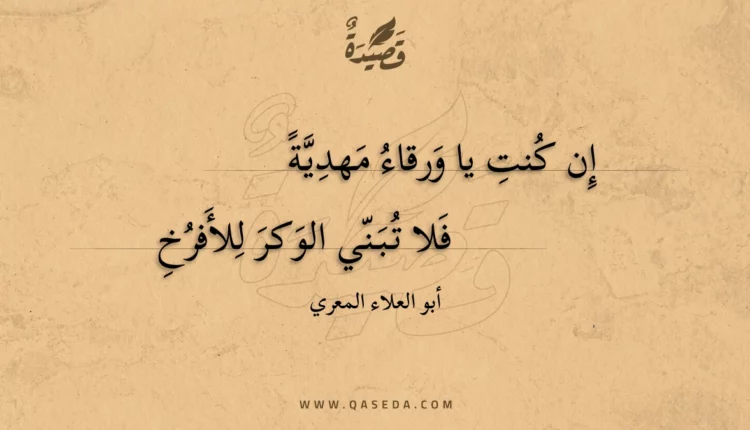 قَصِيدَةٌ
إِن كُنتِ يا وَرقاءُ مَهدِيَّةً
فَلا تُبَنّي الوَكرَ لِلأَفرُخِ
أبو العلاء المعري
WWW.QASEDA.COM